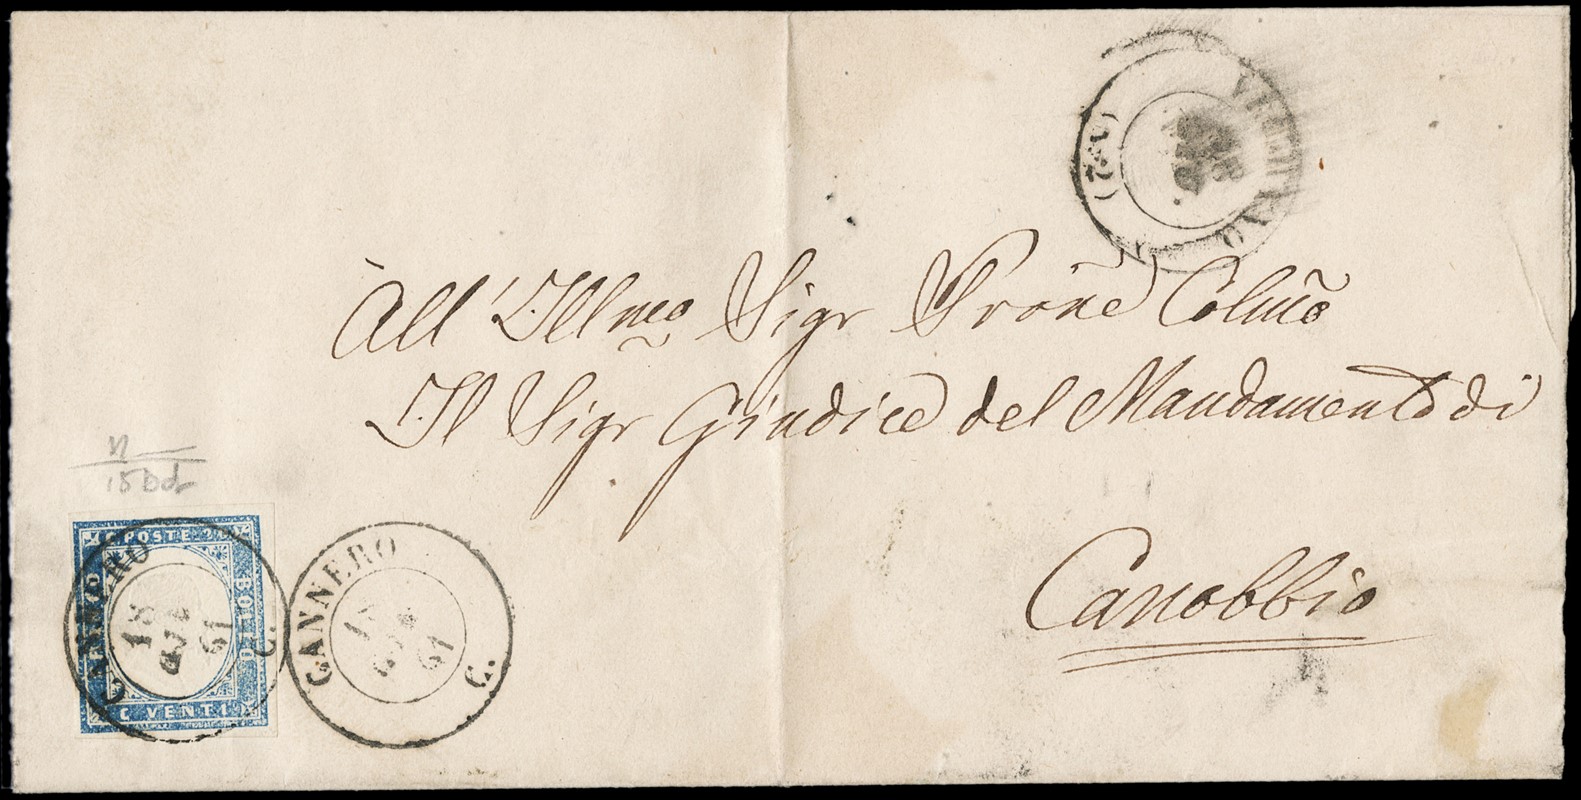 All'Illmo Sigr Prone Colmo
Il Sigr Giudice del Mandamento di
Canobbio
15Dd
C. POSTE
BOLLO
C VENTI
CANNERO
18
61
C.
CANNERO
18
61
C.